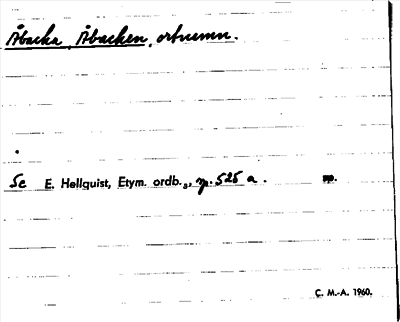 Åbacka, Åbacken, ortnamn.
Se E. Hellquist, Etym. ordb.₃, p. 525 a.
C. M.-A. 1960.